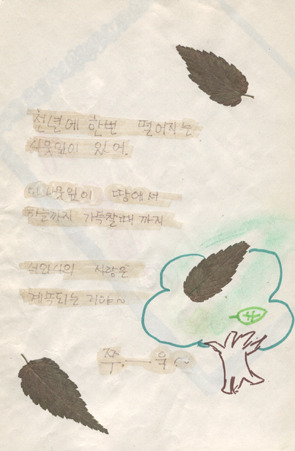 천년에 한번 떨어지는
나뭇잎이 있어.
그 나뭇잎이 땅에서
하늘까지 가득찰때 까지
사랑은
계속되는 거야~